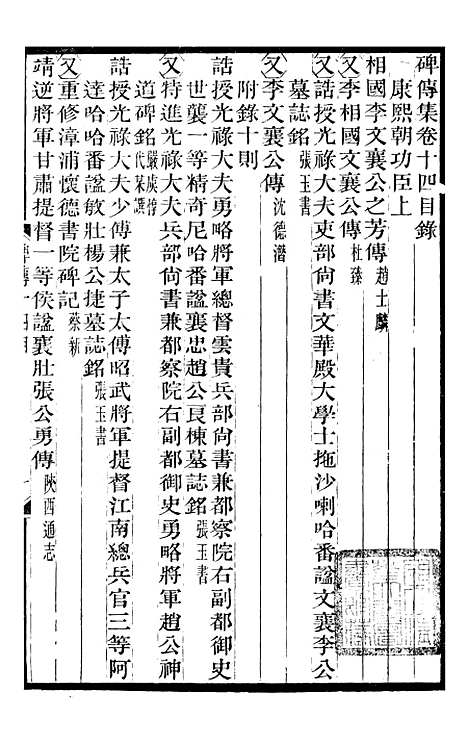 碑傳集卷十四目錄
康熙朝功臣上
相國李文襄公之芳傳 趙士麟
又李相國文襄公傳 杜臻
又誥授光祿大夫吏部尙書文華殿大學士拖沙喇哈番諡文襄李公
墓誌銘 張玉書
又李文襄公傳 沈德潛
附錄十則
誥授光祿大夫勇略將軍總督雲貴兵部尙書兼都察院右副都御史
世襲一等精奇尼哈番諡襄忠趙公良棟墓誌銘 張玉書
又特進光祿大夫兵部尙書兼都察院右副都御史勇略將軍趙公神
道碑銘 嚴虞惇代某譔
誥授光祿大夫少傅兼太子太傅昭武將軍提督江南總兵官三等阿
達哈哈番諡敏壯楊公捷墓誌銘 張玉書
又重修漳浦懷德書院碑記 蔡新
靖逆將軍甘肅提督一等侯諡襄壯張公勇傳 陝西通志